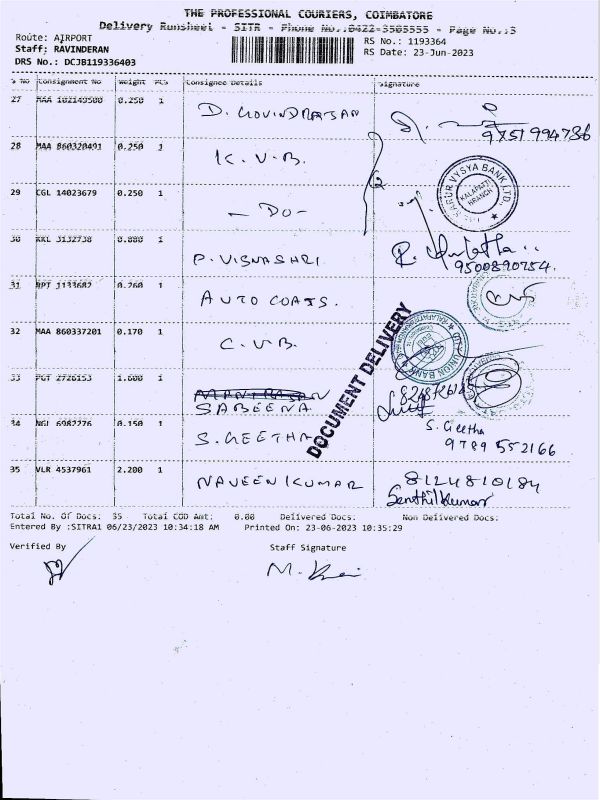 THE PROFESSIONAL COURIERS, COIMBATORE
Delivery Runsheet - SITR - Phone No.:0422-3505555 - Page No.:5
Route: AIRPORT
Staff: RAVINDERAN
DRS No.: DCJB119336403
RS No.: 1193364
RS Date: 23-Jun-2023
S No Consignment No Weight PCS Consignee Details Signature
27 MAA 102149500 0.250 1 D. GOVINDRAJAN 9751994736
28 MAA 860320491 0.250 1 K.V.B.
KARUR VYSYA BANK LTD.,
KALAPATTI
BRANCH
29 CGL 14023679 0.250 1 - DO -
30 KKL 3132738 0.880 1 P. VISWASHRI
9500890754.
31 RPT 1133682 0.260 1 AUTO COATS.
32 MAA 860337201 0.170 1 C.U.B.
DOCUMENT DELIVERY
33 PGT 2726153 1.600 1 SABEENA
34 NGL 6982276 0.150 1 S. GEETHA S. Geetha
9789552166
35 VLR 4537961 2.200 1 NAVEEN KUMAR 8124810184
Senthilkumar
Total No. Of Docs: 35 Total COD Amt: 0.00 Delivered Docs: Non Delivered Docs:
Entered By :SITRA1 06/23/2023 10:34:18 AM Printed On: 23-06-2023 10:35:29
Verified By Staff Signature